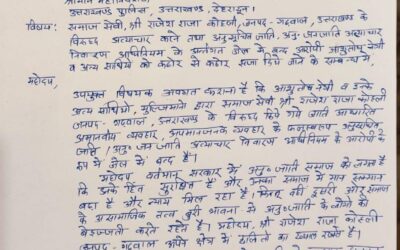 श्रीमान महानिदेशक,
उत्तराखण्ड पुलिस, उत्तराखण्ड, देहरादून।
विषय: समाज सेवी, श्री राजेश राजा कोहली, जनपद - गढ़वाल, उत्तराखण्ड के
विरुद्ध अत्याचार करने तथा अनुसूचित जाति, अनु. जनजाति अत्याचार
निवारण अधिनियम के अन्तर्गत जेल में बन्द आरोपी आशुतोष नेगी
व अन्य साथियों को कठोर से कठोर सजा दिये जाने के सम्बन्ध में,
महोदय,
उपर्युक्त विषयक अवगत कराना है कि आशुतोष नेगी व इनके
अन्य साथियों, मुल्जिमानों द्वारा समाज सेवी श्री राजेश राजा कोहली
जनपद - गढ़वाल, उत्तराखण्ड के विरुद्ध किये गये जाति आधारित
अमानवीय व्यवहार, अपमानजनक व्यवहार के फलस्वरूप अनुसूचित
जाति / अनु० जन जाति अत्याचार निवारण अधिनियम के आरोपी के
रूप में जेल में बन्द है।
महोदय वर्तमान सरकार में अनु० जाति समाज को लगता है
कि उनके हित सुरक्षित हैं और उनका समाज में मान सम्मान
बढ़ा है और न्याय मिल रहा है। किन्तु वहीं दूसरी ओर समाज
के असामाजिक तत्व बुरी भावना से अनु० जाति के लोगों की
बेइज्जती करते रहते हैं। महोदय, श्री राजेश राजा कोहली
जनपद - गढ़वाल अपने क्षेत्र में दलितों का ख्याल रखते हैं।